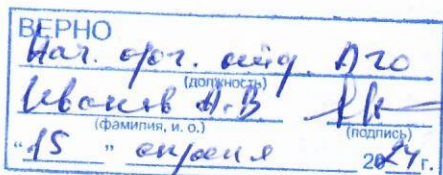 ВЕРНО
Нач. орг. отд. АГО
(должность)
Иванов А.В.
(фамилия, и. о.) (подпись)
"15" апреля 2024 г.